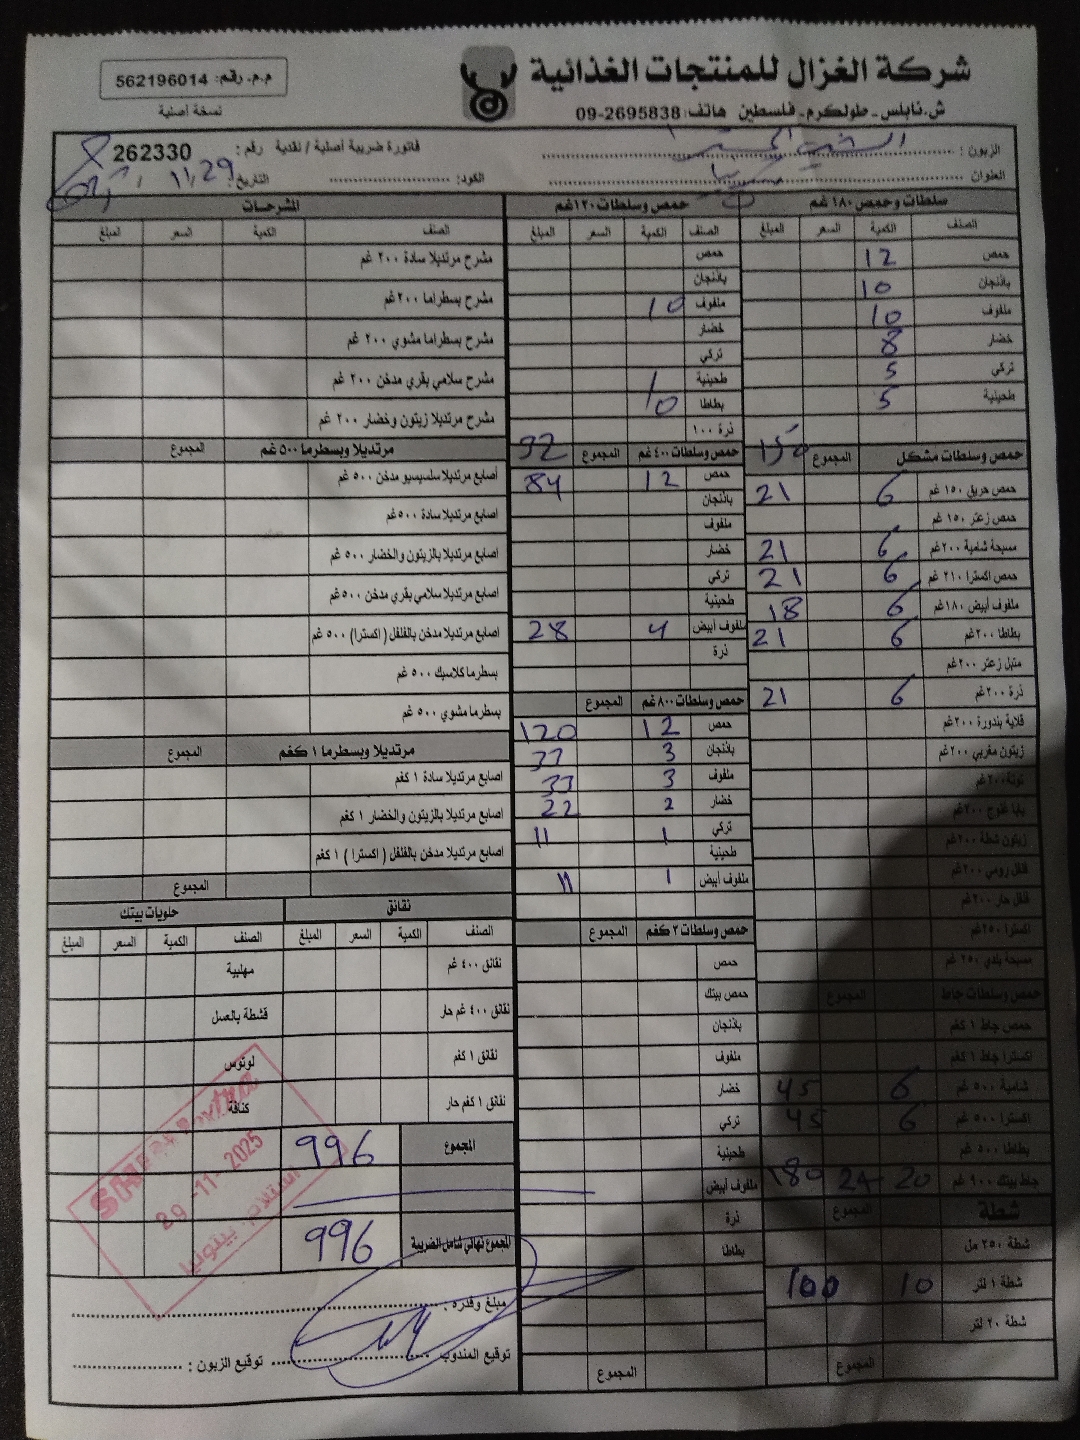 شركة الغزال للمنتجات الغذائية
ش.نابلس - طولكرم - فلسطين هاتف: 09-2695838
م.م. رقم: 562196014
نسخة أصلية
الزبون :
العنوان
فاتورة ضريبة أصلية / نقدية رقم: 262330
الكود: التاريخ: 11/29
سلطات وحمص ١٨٠ غم
الصنف الكمية السعر المبلغ
حمص 12
باذنجان 10
ملفوف 10
خضار 8
تركي 5
طحينية 5
حمص وسلطات مشكل المجموع 150
حمص حريق ١٥٠ غم 6 21
حمص زعتر ١٥٠ غم
مسبحة شامية ٢٠٠غم 6 21
حمص اكسترا ٢١٠ غم 6 21
ملفوف أبيض ١٨٠غم 6 18
بطاطا ٢٠٠غم 6 21
متبل زعتر ٢٠٠غم
ذرة ٢٠٠غم 6 21
قلاية بندورة ٢٠٠غم
زيتون مغربي ٢٠٠غم
تونة ٢٠٠غم
بابا غنوج ٢٠٠غم
فلفل رومي ٢٠٠غم
فلفل حار ٢٠٠غم
اكسترا ٢٥٠غم
مسبحة بلدي ٢٥٠ غم
حمص وسلطات جاط المجموع
حمص جاط ١ كغم
اكسترا جاط ١ كغم
شامية ٥٠٠ غم 6 45
اكسترا ٥٠٠ غم 6 45
بطاطا ٥٠٠ غم
جاط بيتك ٩٠٠ غم 20 180
شطة المجموع
شطة ٢٥٠ مل
شطة ١ لتر 10 100
شطة ٢٠ لتر
المجموع
حمص وسلطات ١٢٠غم
الصنف الكمية السعر المبلغ
حمص
باذنجان
ملفوف 10
خضار
تركي
طحينية
بطاطا 10
ذرة ١٠٠
حمص وسلطات ٤٠٠ غم المجموع
حمص 12 84
باذنجان
ملفوف
خضار
تركي
طحينية
ملفوف أبيض 4 28
ذرة
حمص وسلطات ٨٠٠ غم المجموع
حمص 12 120
باذنجان 3 33
ملفوف 3 33
خضار 2 22
تركي 1 11
طحينية
ملفوف أبيض 1 11
حمص وسلطات ٢ كغم المجموع
حمص
حمص بيتك
باذنجان
ملفوف
خضار
تركي
طحينية
ملفوف أبيض
ذرة
بطاطا
المجموع
المشرحات
الصنف الكمية السعر المبلغ
مشرح مرتديلا سادة ٢٠٠ غم
مشرح بسطراما ٢٠٠غم
مشرح بسطراما مشوي ٢٠٠ غم
مشرح سلامي بقري مدخن ٢٠٠ غم
مشرح مرتديلا زيتون وخضار ٢٠٠ غم
مرتديلا وبسطرما ٥٠٠ غم المجموع
أصابع مرتديلا سلسيسيو مدخن ٥٠٠ غم
اصابع مرتديلا سادة ٥٠٠غم
اصابع مرتديلا بالزيتون والخضار ٥٠٠ غم
اصابع مرتديلا سلامي بقري مدخن ٥٠٠غم
اصابع مرتديلا مدخن بالفلفل ( اكسترا) ٥٠٠ غم
بسطرما كلاسيك ٥٠٠ غم
بسطرما مشوي ٥٠٠ غم
مرتديلا وبسطرما ١ كغم المجموع
اصابع مرتديلا سادة ١ كغم
اصابع مرتديلا بالزيتون والخضار ١ كغم
اصابع مرتديلا مدخن بالفلفل ( اكسترا ) ١ كغم
المجموع
نقانق
الصنف الكمية السعر المبلغ
نقانق ٤٠٠ غم
نقانق ٤٠٠ غم حار
نقانق ١ كغم
نقانق ١ كغم حار
حلويات بيتك
الصنف الكمية السعر المبلغ
مهلبية
قشطة بالعسل
لوتوس
كنافة
29-11-2025
المجموع 996
المجموع نهائي شامل الضريبة 996
مبلغ وقدره :
توقيع المندوب
توقيع الزبون :